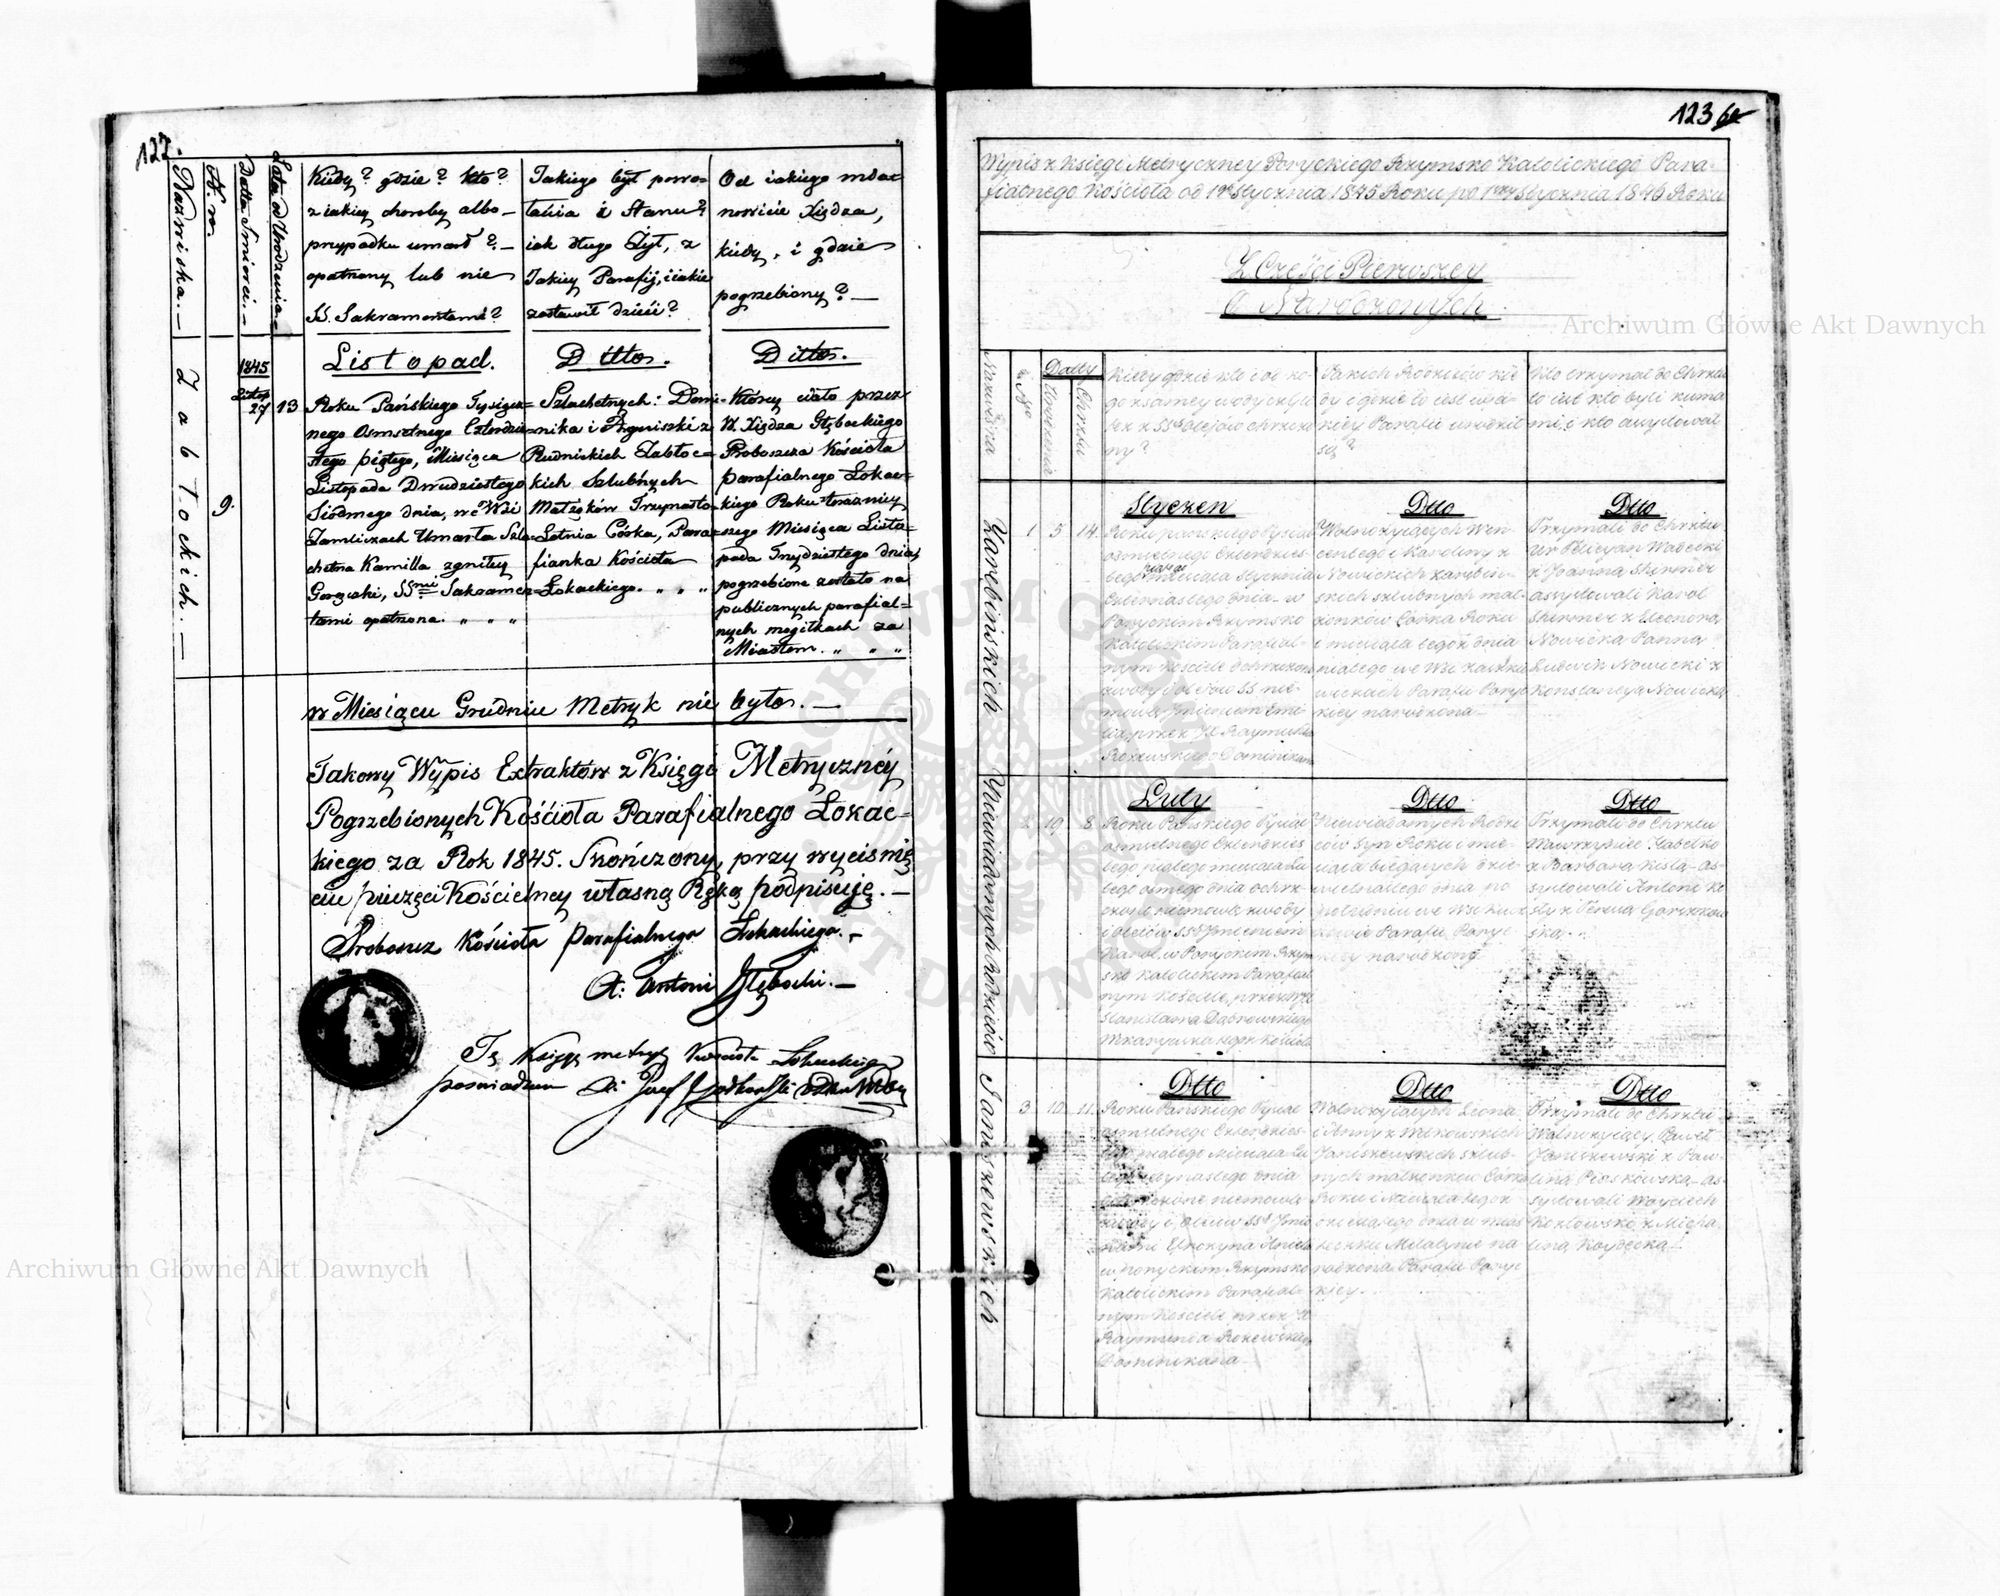 122.
Nazwiska. —
N. ro.
Datta Smierci. —
Lata od Urodzenia. —
Kiedy? gdzie? kto?
z iakiey choroby albo —
przypadku umarł? —
opatrzony lub nie
SS. Sakramentami?
Jakiego był powo-
łania i Stanu?
iak długo Żył, z
Jakiey Parafij, i iakie
zostawił dzieci?
Od iakiego mia-
nowicie Xiędza,
kiedy, i gdzie
pogrzebiony? —
Zabłockich. —
9.
1845
Listop.
27
13
Listopad.
Roku Pańskiego Tysiącz=
nego Osmsetnego Czterdzie=
stego piątego, Miesiąca
Listopada Dwudziestego
Siódmego dnia, we Wsi
Zamliczach Umarła Szla=
chetna Kamilla zgniłey
Gorączki, SSmi Sakramen=
tami opatrzona. „ „ „
Ditto.
Szlachetnych: Domi=
nika i Agniszki z
Rudnickich Zabłoc=
kich Szlubnych
Małżąków Trzynasto=
Letnia Córka, Para=
fianka Kościoła
Łokackiego. „ „ „
Ditto.
Którey ciało przez
W. Xiędza Głębockiego
Proboszcza Kościoła
parafialnego Łokac=
kiego Roku teraźniey
szego Miesiąca Listo=
pada Trzydziestego dnia,
pogrzebione zostało na
publicznych parafial=
nych mogiłkach za
Miastem. „ „ „
w Miesiącu Grudniu Metryk nie było. —
Takowy Wypis Extraktów z Księgi Metryczney
Pogrzebionych Kościoła Parafialnego Łokac-
kiego za Rok 1845. Skończony, przy wyciśnię
ciu pieczęci Kościelney własną Ręką podpisuję. —
Proboszcz Kościoła Parafialnego Łokackiego. —
X. Antoni Głębocki. —
Tę Księgę metryk Kościoła Łokackiego
poswiadczam X. Józef
123
Wypis z Księgi Metryczney Poryckiego Rzymsko Katolickiego Para-
fialnego Kościoła od 1go Stycznia 1845 Roku po 1wszy Stycznia 1846 Roku
Z Części Pierwszey
O Narodzonych
Archiwum Główne Akt Dawnych
Nazwiska
Datty
Urodzenia
Chrztu
Kiedy gdzie kto i od ko-
go z samey wody czyli
tez z SSch Olejów chrzczo
ny?
Jakich Rodziców kie
dy i gdzie to iest w ja-
kiey Parafii urodził
się?
Kto trzymał do Chrztu
to iest kto byli kuma
mi, i kto assystował
Zarebińskich
1
5
14
Styczen
Roku pańskiego Tysiąc
osmsetnego czterdzies-
tego piątego miesiąca Stycznia
czternastego dnia w
Poryckim Rzymsko
Katolickim Parafial-
nym Kościele ochrzczono
z wody i olejów SS nie-
mowlę Jmieniem Emi
lia przez X Raymunda
Rożewskiego Dominikana
Dtto
Wolnożyjących Win
centego i Karoliny z
Nowickich Zarebiń-
skich szlubnych mał-
żonków Córka Roku
i miesiąca tegoż dnia
piątego we Wsi
Parafii Poryc
kiey narodzona —
Dtto
Trzymali do Chrztu
Ur Felicyan Wadecki
z Joanną Skirmer
assystowali Karol
Skirmer z Eleonorą
Nowicką Panną
Ludwik Nowicki z
Konstancyą Nowicką
Niewiadomych Rodziców
2
19
8
Luty
Roku Pańskiego Tysiąc
osmsetnego czterdzies-
tego piątego miesiąca Lu
tego osmego dnia ochrz-
czono niemowlę z wody
i olejów SSch Jmieniem
Karol w Poryckim Rzym
sko Katolickim Parafial
nym Kościele, przez X
Stanisława Dąbrowskiego
Wikaryusza tegoż Kościoła
Dtto
Niewiadomych Rodzi
ców syn Roku i mie-
siąca bieżących dzie
więtnastego dnia po
południu we Wsi
Parafii Poryc
kiey narodzony
Dtto
Trzymali do Chrztu
Wawrzyniec Habelko
z Barbarą Kistą as-
systowali Antoni Ki
sty z Teresą Gorszkow
ską.
Janiszewskich
3
10
11
Dtto
Roku Pańskiego Tysiąc
osmsetnego Czterdzies-
tego piątego Miesiąca Lu
tego jedynastego dnia
ochrzczone niemowlę
z wody i Olejów SSch Jmio
nami Elnoryna Aniela
w Poryckim Rzymsko
Katolickim Parafial-
nym Kościele przez X
Raymunda Rożewskiego
Dominikana
Dtto
Wolnożyjących Leona
i Anny z Witkowskich
Janiszewskich szlub-
nych małżonków Córka
Roku i Miesiąca tegoż
dziesiątego dnia w mias
teczku Milatynie na
rodzona Parafii Poryc
kiey.
Dtto
Trzymali do Chrztu
Wolnożyjący Paweł
Janiszewski z Paw
liną Piaskowską as-
systowali Woyciech
Kozłowski z Micha
liną Koydecką.
Archiwum Główne Akt Dawnych
ARCHIWUM GŁÓWNE AKT DAWNYCH